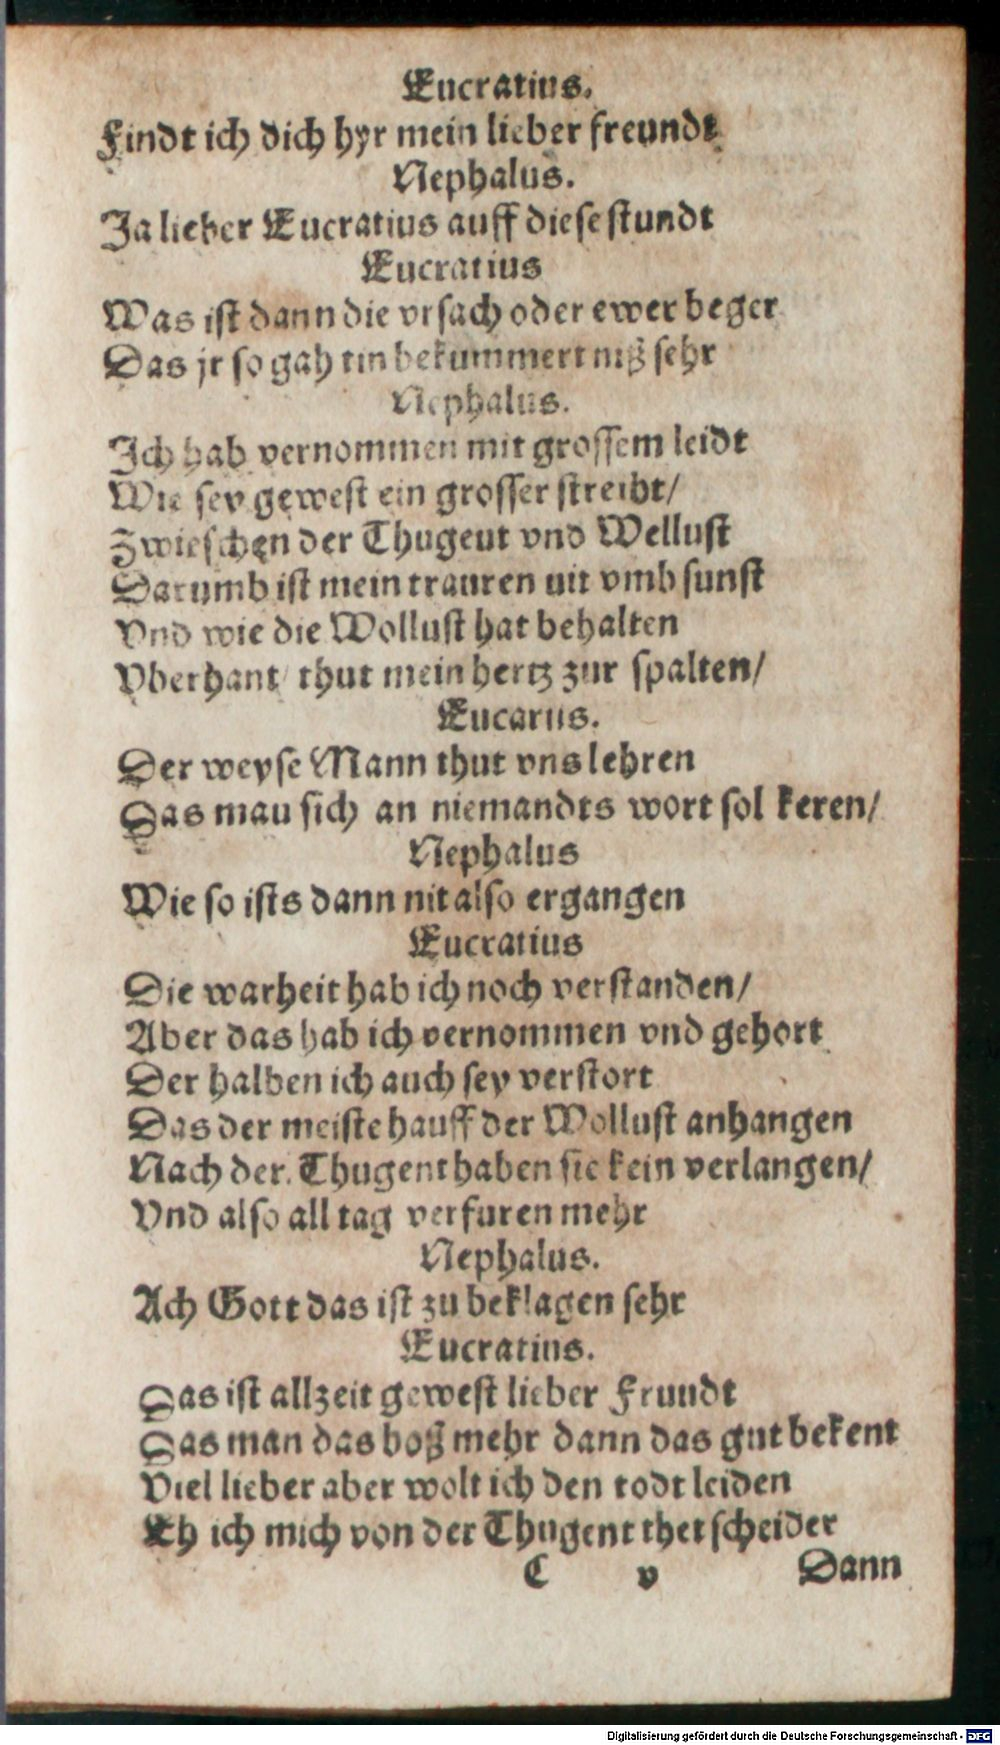 Eucratius.
Findt ich dich hyr mein lieber freundt
Nephalus.
Ja lieber Eucratius auff diese stundt
Eucratius
Was ist dann die vrsach oder ewer beger
Das jr so gah tin bekummertniß sehr
Nephalus.
Ich hab vernommen mit grossem leidt
Wie sey gewest ein grosser streibt/
Zwieschen der Thugeut vnd Wellust
Darumb ist mein trauren uit vmb sunst
Vnd wie die Wollust hat behalten
Vberhant/ thut mein hertz zur spalten/
Eucarus.
Der weyse Mann thut vns lehren
Das mau sich an niemandts wort sol keren/
Nephalus
Wie so ists dann nit also ergangen
Eucratius
Die warheit hab ich noch verstanden/
Aber das hab ich vernommen vnd gehort
Der halben ich auch sey verstort
Das der meiste hauff der Wollust anhangen
Nach der Thugent haben sie kein verlangen/
Vnd also all tag verfuren mehr
Nephalus.
Ach Gott das ist zu beklagen sehr
Eucratius.
Das ist allzeit gewest lieber Frundt
Das man das boß mehr dann das gut bekent
Viel lieber aber wolt ich den todt leiden
Eh ich mich von der Thugent thet scheider
C v Dann
Digitalisierung gefördert durch die Deutsche Forschungsgemeinschaft - DFG